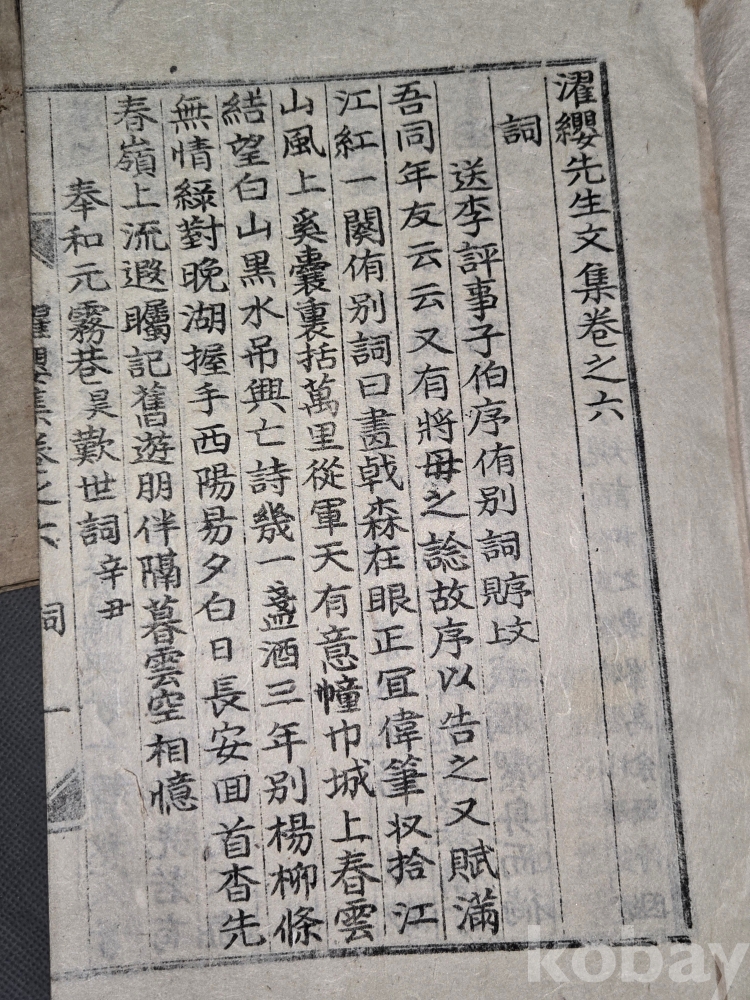 濯纓先生文集卷之六
詞
送李評事子伯序侑別詞見上序文
吾同年友云云又有將母之諗故序以告之又賦滿
江紅一闋侑別詞曰畵戟森在眼正宜偉筆收拾江
山風上奚囊裏括萬里從軍天有意幢巾城上春雲
結望白山黑水吊興亡詩幾一盞酒三年別楊柳條
無情綠對晩湖握手西陽易夕白日長安回首杳先
春嶺上流遐矚記舊遊朋伴隔暮雲空相憶
奉和元霧巷昊歎世詞辛丑
濯纓集卷之六 詞 一
kobay